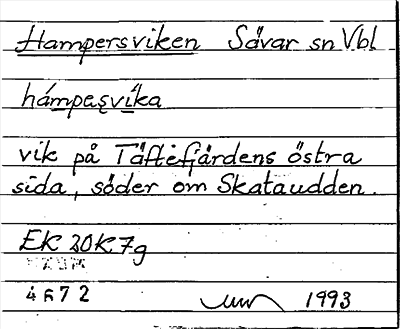 Hampersviken Sävar sn Vbl
hámpeṣvìka
vik på Täftefjärdens östra
sida, söder om Skataudden.
EK 20K 7g
4672
1993